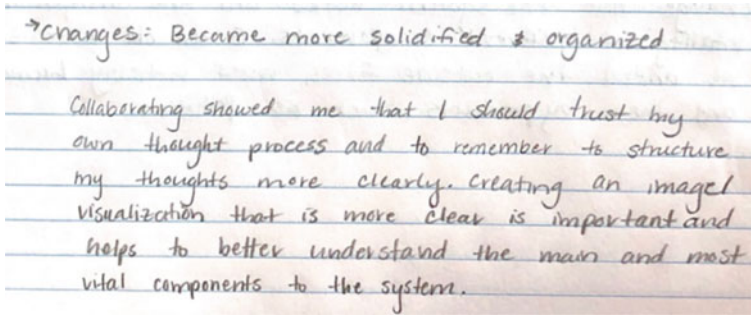 →Changes: Became more solidified & organized
Collaborating showed me that I should trust my
own thought process and to remember to structure
my thoughts more clearly. Creating an image/
visualization that is more clear is important and
helps to better understand the main and most
vital components to the system.